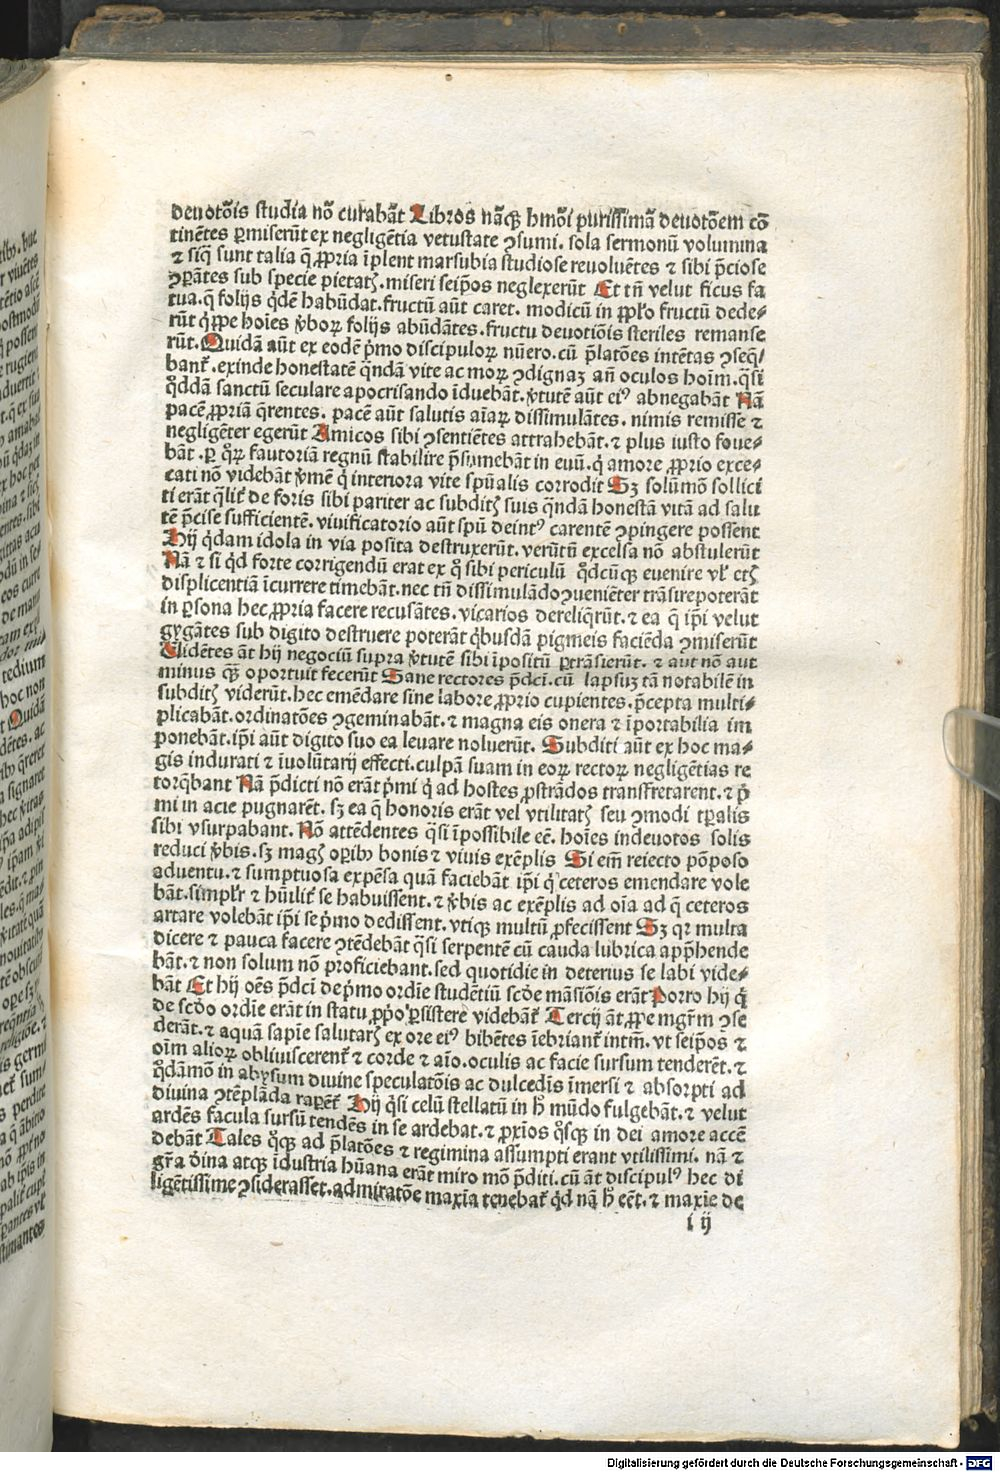 deuotōis studia nō curabāt Libros nāqꝫ hmōi purissimā deuotōem cō
tinētes ꝑmiserūt ex negligētia vetustate ꝯsumi. sola sermonū volumina
⁊ siq̄ sunt talia q̄ ꝓpria īplent marsubia studiose reuoluētes ⁊ sibi p̄ciose
ꝯꝑātes sub specie pietatꝭ. miseri seip̄os neglexerūt Et tn̄ velut ficus fa
tua. q̄ folijs qd̄e habūdat. fructū aūt caret. modicū in ꝓplo fructū dede⸗
rūt q̇ppe hoīes v̇boꝝ folijs abūdātes. fructu deuotiōis steriles remanse
rūt. Quidā aūt ex eodē pͥmo discipuloꝝ nūero. cū p̄latōes intētas ꝯseq̄⸗
bant᷑. exinde honestatē qͣndā vite ac moꝝ ꝯdignaꝫ an̄ oculos hoīm. qͣsi
qͦddā sanctū seculare apocrisando īduebāt. v̇tutē aūt eiꝰ abnegabāt Nā
pacē ꝓpriā q̄rentes. pacē aūt salutis aīaꝝ dissimulātes. nimis remisse ⁊
negligēter egerūt Amicos sibi ꝯsentiētes attrahebāt. ⁊ plus iusto foue⸗
bāt. ꝑ qͦꝝ fautoriā regnū stabilire p̄sumebāt in euū. q̇ amore ꝓprio exce⸗
cati nō videbāt v̇mē q̇ interiora vite spūalis corrodit Sꝫ solūmō sollici
ti erāt qͣlit᷑ de foris sibi pariter ac subditꝭ suis qͣndā honestā vitā ad salu
tē p̄cise sufficientē. viuificatorio aūt spū deintꝰ carentē ꝯpingere possent
Hij qͣdam idola in via posita destruxerūt. verūtn̄ excelsa nō abstulerūt
Nā ⁊ si qͥd forte corrigendū erat ex qͦ sibi periculū qͦdcūqꝫ euenire vl̓ ctꝭ
displicentiā īcurrere timebāt. nec tn̄ dissimulādo ꝯueniēter trāsire poterāt
in ꝑsona hec ꝓpria facere recusātes. vicarios dereliqͣrūt. ⁊ ea q̄ ip̄i velut
gygātes sub digito destruere poterāt qͥbusdā pigmeis faciēda ꝯmiserūt
Uidētes āt hij negociū supra v̇tutē sibi īpositū ꝑtrāsierūt. ⁊ aut nō aut
minus qͣꝫ oportuit fecerūt Sane rectores p̄dci. cū lapsuꝫ tā notabilē in
subditꝭ viderūt. hec emēdare sine labore ꝓprio cupientes. p̄cepta multi⸗
plicabāt. ordinatōes ꝯgeminabāt. ⁊ magna eis onera ⁊ īportabilia im
ponebāt. ip̄i aūt digito suo ea leuare noluerūt. Subditi aūt ex hoc ma⸗
gis indurati ⁊ īuolūtarij effecti. culpā suam in eoꝝ rectoꝝ negligētias re
torq̄bant Nā p̄dicti nō erāt pͥmi q̇ ad hostes ꝓstrādos transfretarent. ⁊ pͥ
mi in acie pugnarēt. sꝫ ea q̄ honoris erāt vel vtilitatꝭ seu ꝯmodi tꝑalis
sibi vsurpabant. Nō attēdentes qͣsi īpossibile eē. hoīes indeuotos solis
reduci v̇bis. sꝫ magꝭ oꝑibꝫ bonis ⁊ viuis exēplis Si eīm reiecto pōposo
aduentu. ⁊ sumptuosa expēsa quā faciebāt ip̄i q̇ ceteros emendare vole
bāt. simpl̓r ⁊ hūilit᷑ se habuissent. ⁊ v̇bis ac exēplis ad oīa ad q̄ ceteros
artare volebāt ip̄i se pͥmo dedissent. vtiqꝫ multū ꝓfecissent Sꝫ qꝛ multa
dicere ⁊ pauca facere ꝯtēdebāt qͣsi serpentē cū cauda lubrica app̄hende
bāt. ⁊ non solum nō proficiebant. sed quotidie in deterius se labi vide⸗
bāt Et hij oēs p̄dci de pͥmo ordīe studētiū scd̄e māsiōis erāt Porro hij q̇
de scd̄o ordīe erāt in statu ꝓpͦo ꝑsistere videbāt᷑ Tercij āt ꝓpe mgr̄m ꝯse
derāt. ⁊ aquā sapīe salutarꝭ ex ore eiꝰ bibētes īebriant᷑ intm̄. vt seip̄os ⁊
oīm alioꝝ obliuiscerent᷑ ⁊ corde ⁊ aīo. oculis ac facie sursum tenderēt. ⁊
qͦdāmō in abysum diuine speculatōis ac dulcedīs īmersi ⁊ absorpti ad
diuina ꝯtēplāda raꝑēt᷑ Hij qͣsi celū stellatū in h̄ mūdo fulgebāt. ⁊ velut
ardēs facula sursū tendēs in se ardebat. ⁊ ꝓxīos qͦsqꝫ in dei amore accē
debāt Tales qͦqꝫ ad p̄latōes ⁊ regimina assumpti erant vtilissimi. nā ⁊
gr̄a dīna atqꝫ īdustria hūana erāt miro mō p̄diti. cū āt discipulꝰ hec di
ligētissime ꝯsiderasset. admiratōe maxīa tenebat᷑ qͥd nā h̄ eēt. ⁊ maxīe de
i ij
Digitalisierung gefördert durch die Deutsche Forschungsgemeinschaft - DFG